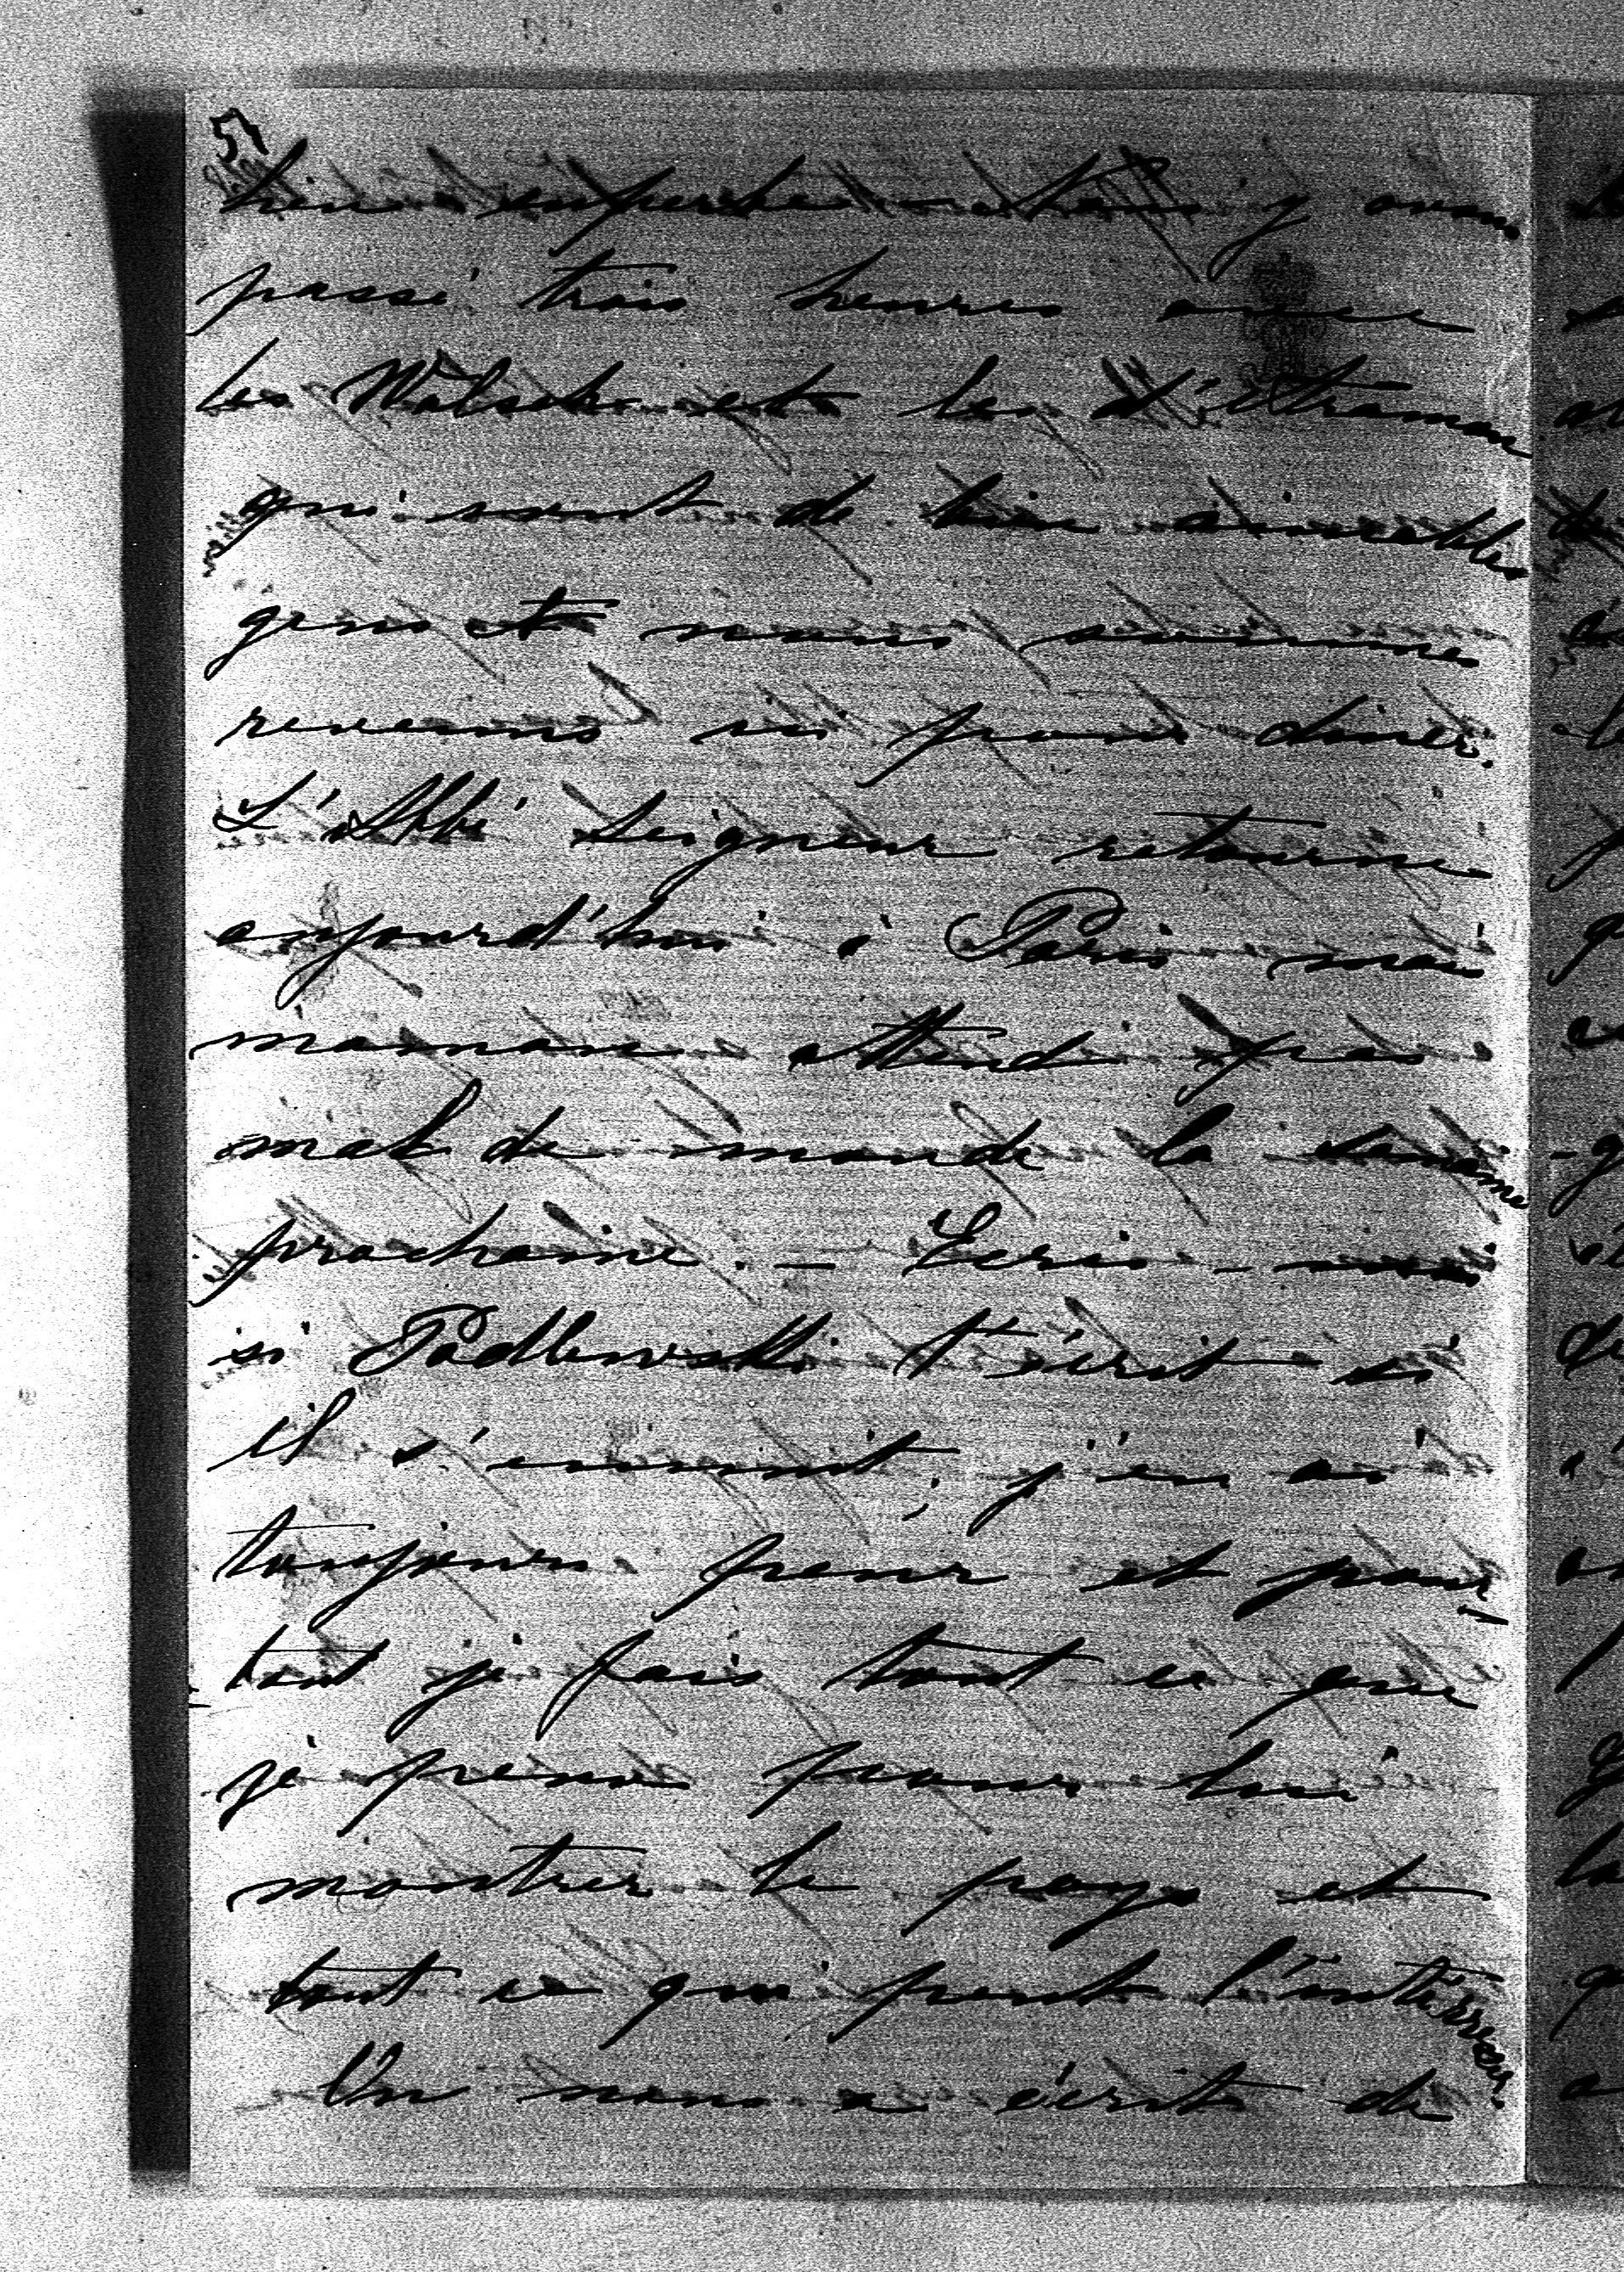 5)
bien superbe — Nous y avons
passé trois heures avec
les Walsh et les d'Etraman
qui sont de bien aimables
gens et nous sommes
revenus ici pour diner.
L'Abbé Seigneur retourne
aujourd'hui à Paris mais
maman attend pas
mal de monde la semaine
prochaine. — Ecris-moi
si Podlewski t'écrit si
il s'ennuit; j'en ai
toujours peur et pour-
tant je fais tout ce que
je peux pour lui
montrer le pays et
tout ce qui peut l'intérresser.
On nous a écrit de